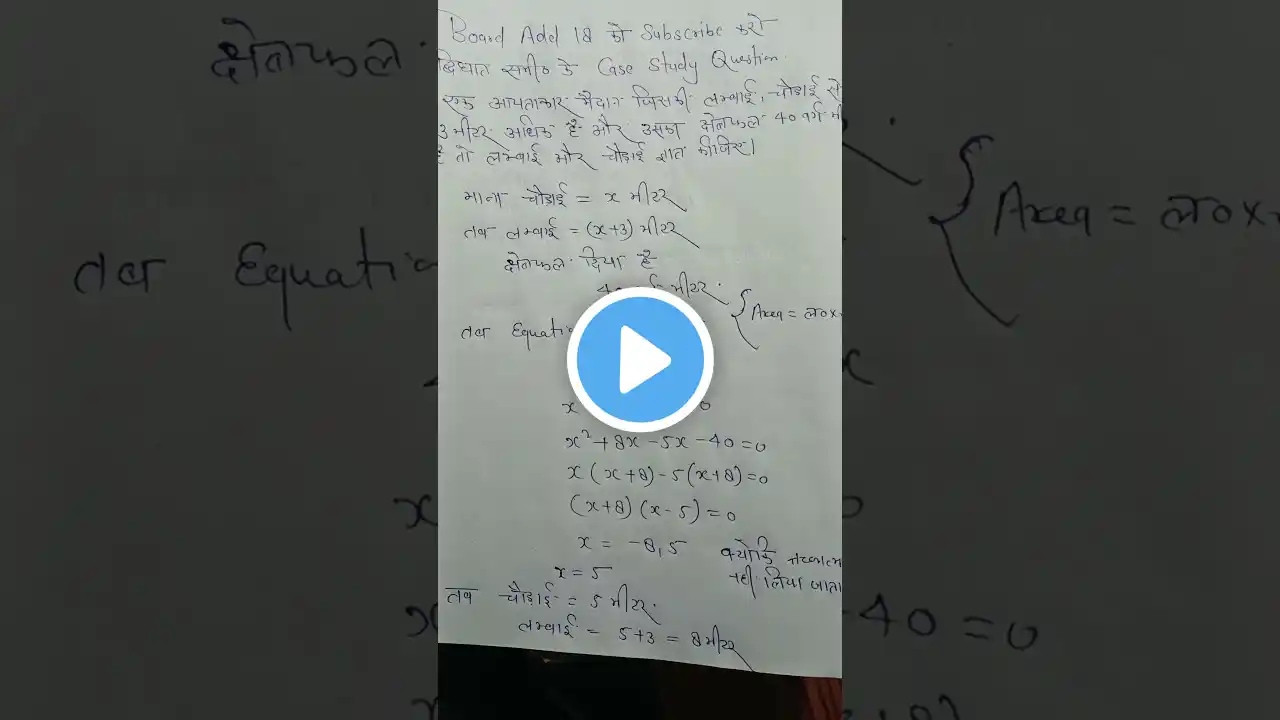 Board Add 18 को Subscribe करो
द्विघात समी० के Case Study Question.
एक आयताकार मैदान जिसकी लम्बाई, चौड़ाई से
3 मीटर अधिक है और उसका क्षेत्रफल 40 वर्ग मी
है तो लम्बाई और चौड़ाई ज्ञात कीजिए।
माना चौड़ाई = x मीटर
तब लम्बाई = (x+3) मीटर
क्षेत्रफल दिया है
मीटर.
तब Equati
{ Area = ल०x
x² + 8x - 5x - 40 = 0
x (x+8) - 5(x+8) = 0
(x+8) (x-5) = 0
x = -8, 5 क्योंकि
x = 5 नहीं लिया जाता
तब चौड़ाई = 5 मीटर.
लम्बाई = 5+3 = 8 मीटर
क्षेत्रफल.
तब Equati
{ Area = ल०x
-40 = 0